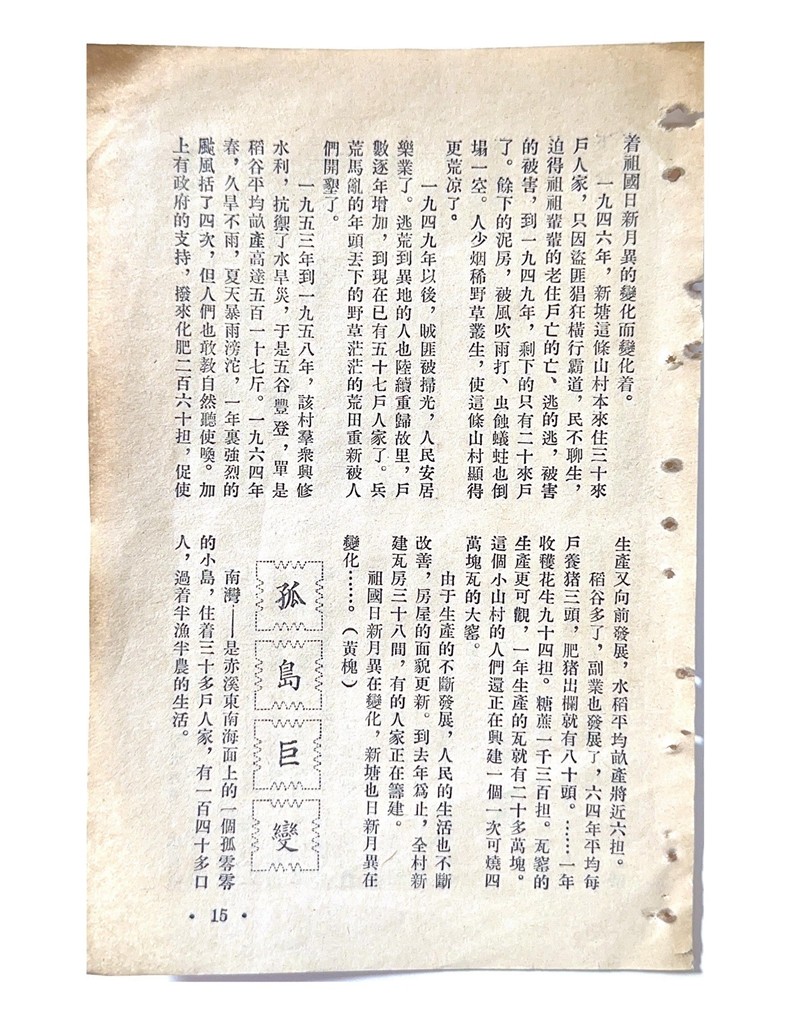 着祖國日新月異的變化而變化着。
一九四六年，新塘這條山村本來住三十來
戶人家，只因盜匪猖狂橫行霸道，民不聊生，
迫得祖祖輩輩的老住戶亡的亡、逃的逃，被害
的被害，到一九四九年，剩下的只有二十來戶
了。餘下的泥房，被風吹雨打、虫蝕蟻蛀也倒
塌一空。人少烟稀野草叢生，使這條山村顯得
更荒凉了。
一九四九年以後，賊匪被掃光，人民安居
樂業了。逃荒到異地的人也陸續重歸故里，戶
數逐年增加，到現在已有五十七戶人家了。兵
荒馬亂的年頭丟下的野草茫茫的荒田重新被人
們開墾了。
一九五三年到一九五八年，該村羣衆興修
水利，抗禦了水旱災，于是五谷豐登，單是
稻谷平均畝產高達五百一十七斤。一九六四年
春，久旱不雨，夏天暴雨滂沱，一年裏強烈的
颱風括了四次，但人們也敢教自然聽使喚。加
上有政府的支持，撥來化肥二百六十担，促使
生產又向前發展，水稻平均畝產將近六担。
稻谷多了，副業也發展了，六四年平均每
戶養猪三頭，肥猪出欄就有八十頭。……一年
收穫花生九十四担。糖蔗一千三百担。瓦窰的
生產更可觀，一年生產的瓦就有二十多萬塊。
這個小山村的人們還正在興建一個一次可燒四
萬塊瓦的大窰。
由于生產的不斷發展，人民的生活也不斷
改善，房屋的面貌更新。到去年爲止，全村新
建瓦房三十八間，有的人家正在籌建。
祖國日新月異在變化，新塘也日新月異在
變化……。（黃槐）
孤島巨變
南灣——是赤溪東南海面上的一個孤零零
的小島，住着三十多戶人家，有一百四十多口
人，過着半漁半農的生活。
• 15 •